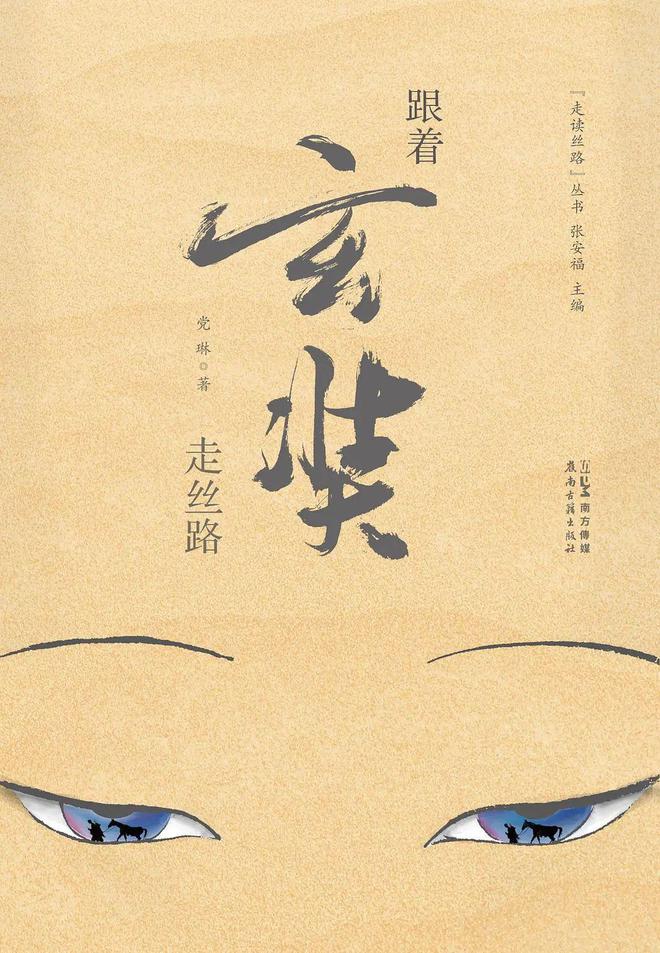 跟着
玄奘
走丝路
党琳◎著
『走读丝路』丛书 张安福 主编
南方傳媒
嶺南古籍出版社